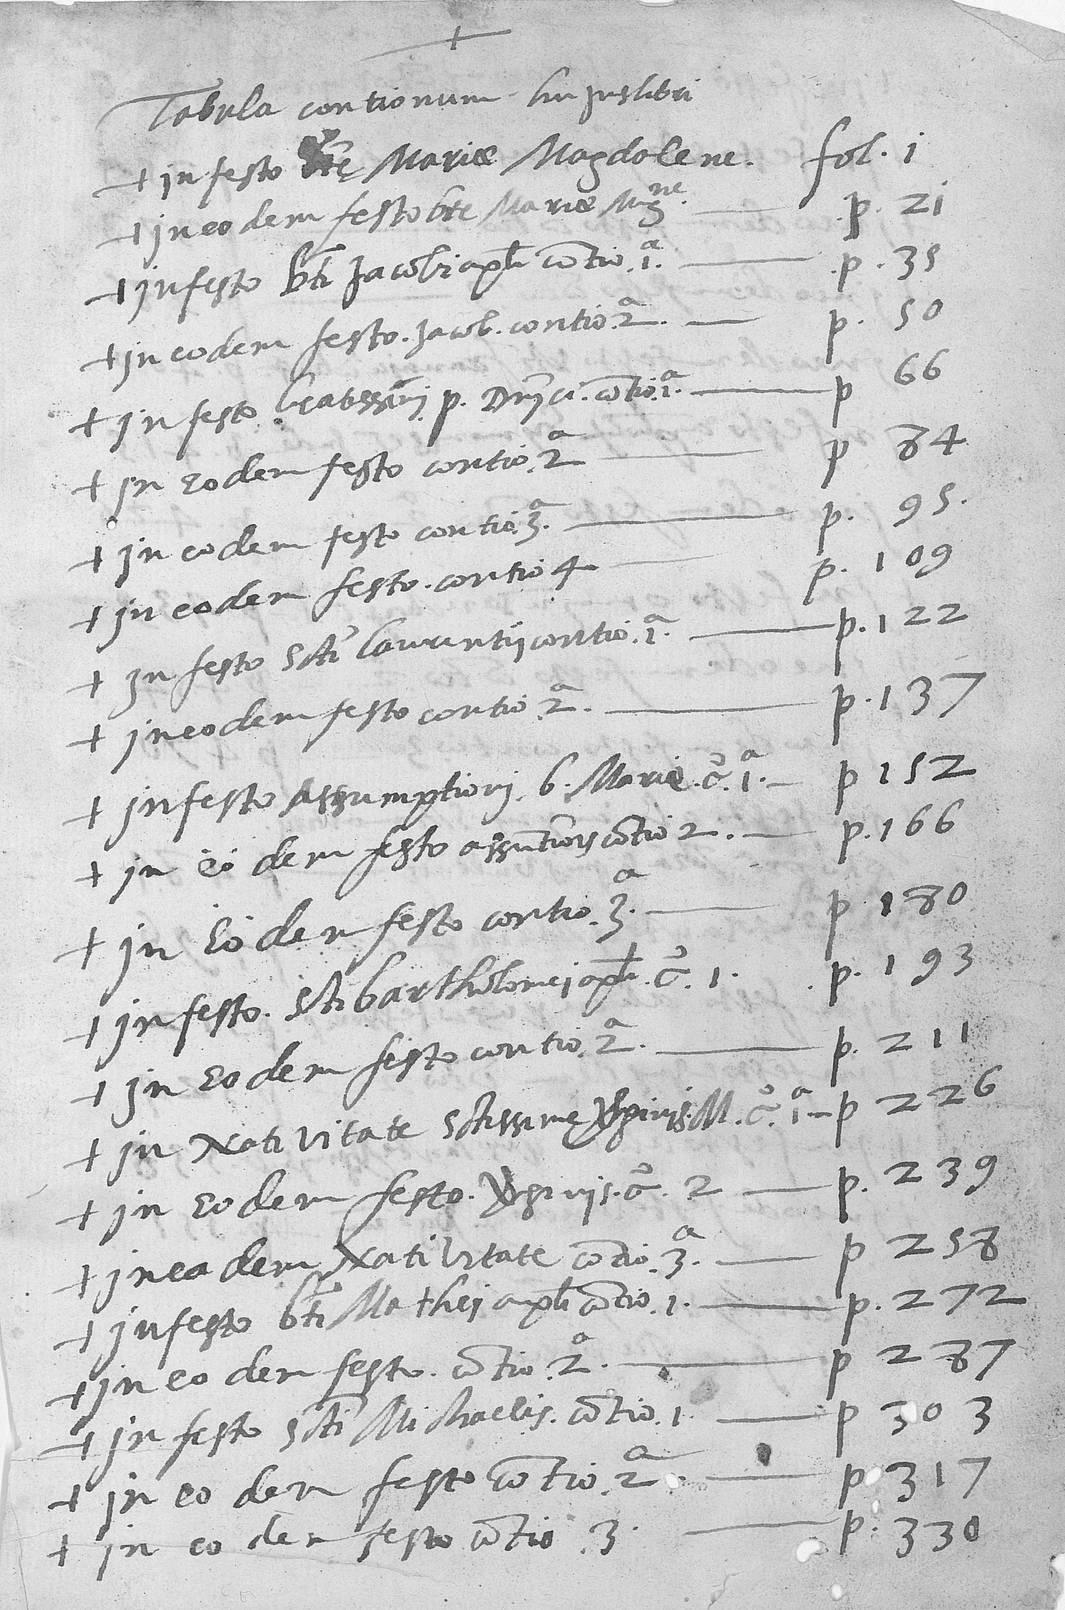 +
Tabula contionum huiuslibri
+ in festo btę Mariæ Magdalene. fol. 1
+ in eodem festo bte Mariæ Mg^ne. p. 21
+ in festo bti Jacobi apli contio .1ª. p. 35
+ in eodem festo. Jacob. contio .2ª. p. 50
+ in festo beatissimi p. Dnici. contio .1ª. p 66
+ in eodem festo contio .2ª p 84
+ in eodem festo contio .3ª. p. 95.
+ in eodem festo. contio 4 p. 109
+ in festo Scti laurentii contio .1ª. p. 122
+ in eodem festo contio .2ª. p. 137
+ in festo Assumptionj. b. Mariæ. cº. 1ª. p 152
+ in eodem festo assūtionis cōtio 2. p. 166
+ in eodem festo contio .3ª. p 180
+ in festo. Scti bartholomei apli. cº. 1. p. 193
+ in eodem festo contio .2ª. p. 211
+ in Nativitate Sctissimę Virginis. M. cº. 1ª p 226
+ in eodem festo. Virginis. cº. 2 p. 239
+ in eadem Nativitate contio .3ª. p 258
+ in festo bti Mathei apli cōtio .1. p. 272
+ in eodem festo. cōtio .2ª. p 287
+ in festo Scti Michaelis. cōtio .1 p 303
+ in eodem festo cōtio .2ª. p 317
+ in eodem festo cōtio .3. p. 330